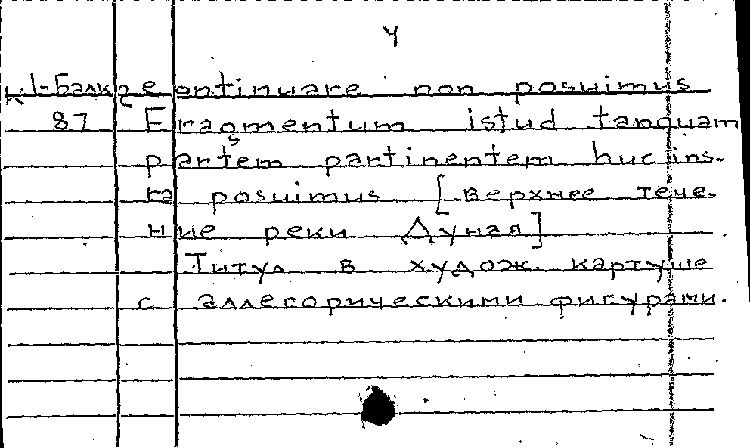 4
К1-Балк ge continuare non posuimus
87 Fragmentum istud tanquam
partem partinentem huc ins-
ra posuimus [верхнее тече-
ние реки Дуная]
Титул в худож. картуше
с аллегорическими фигурами.